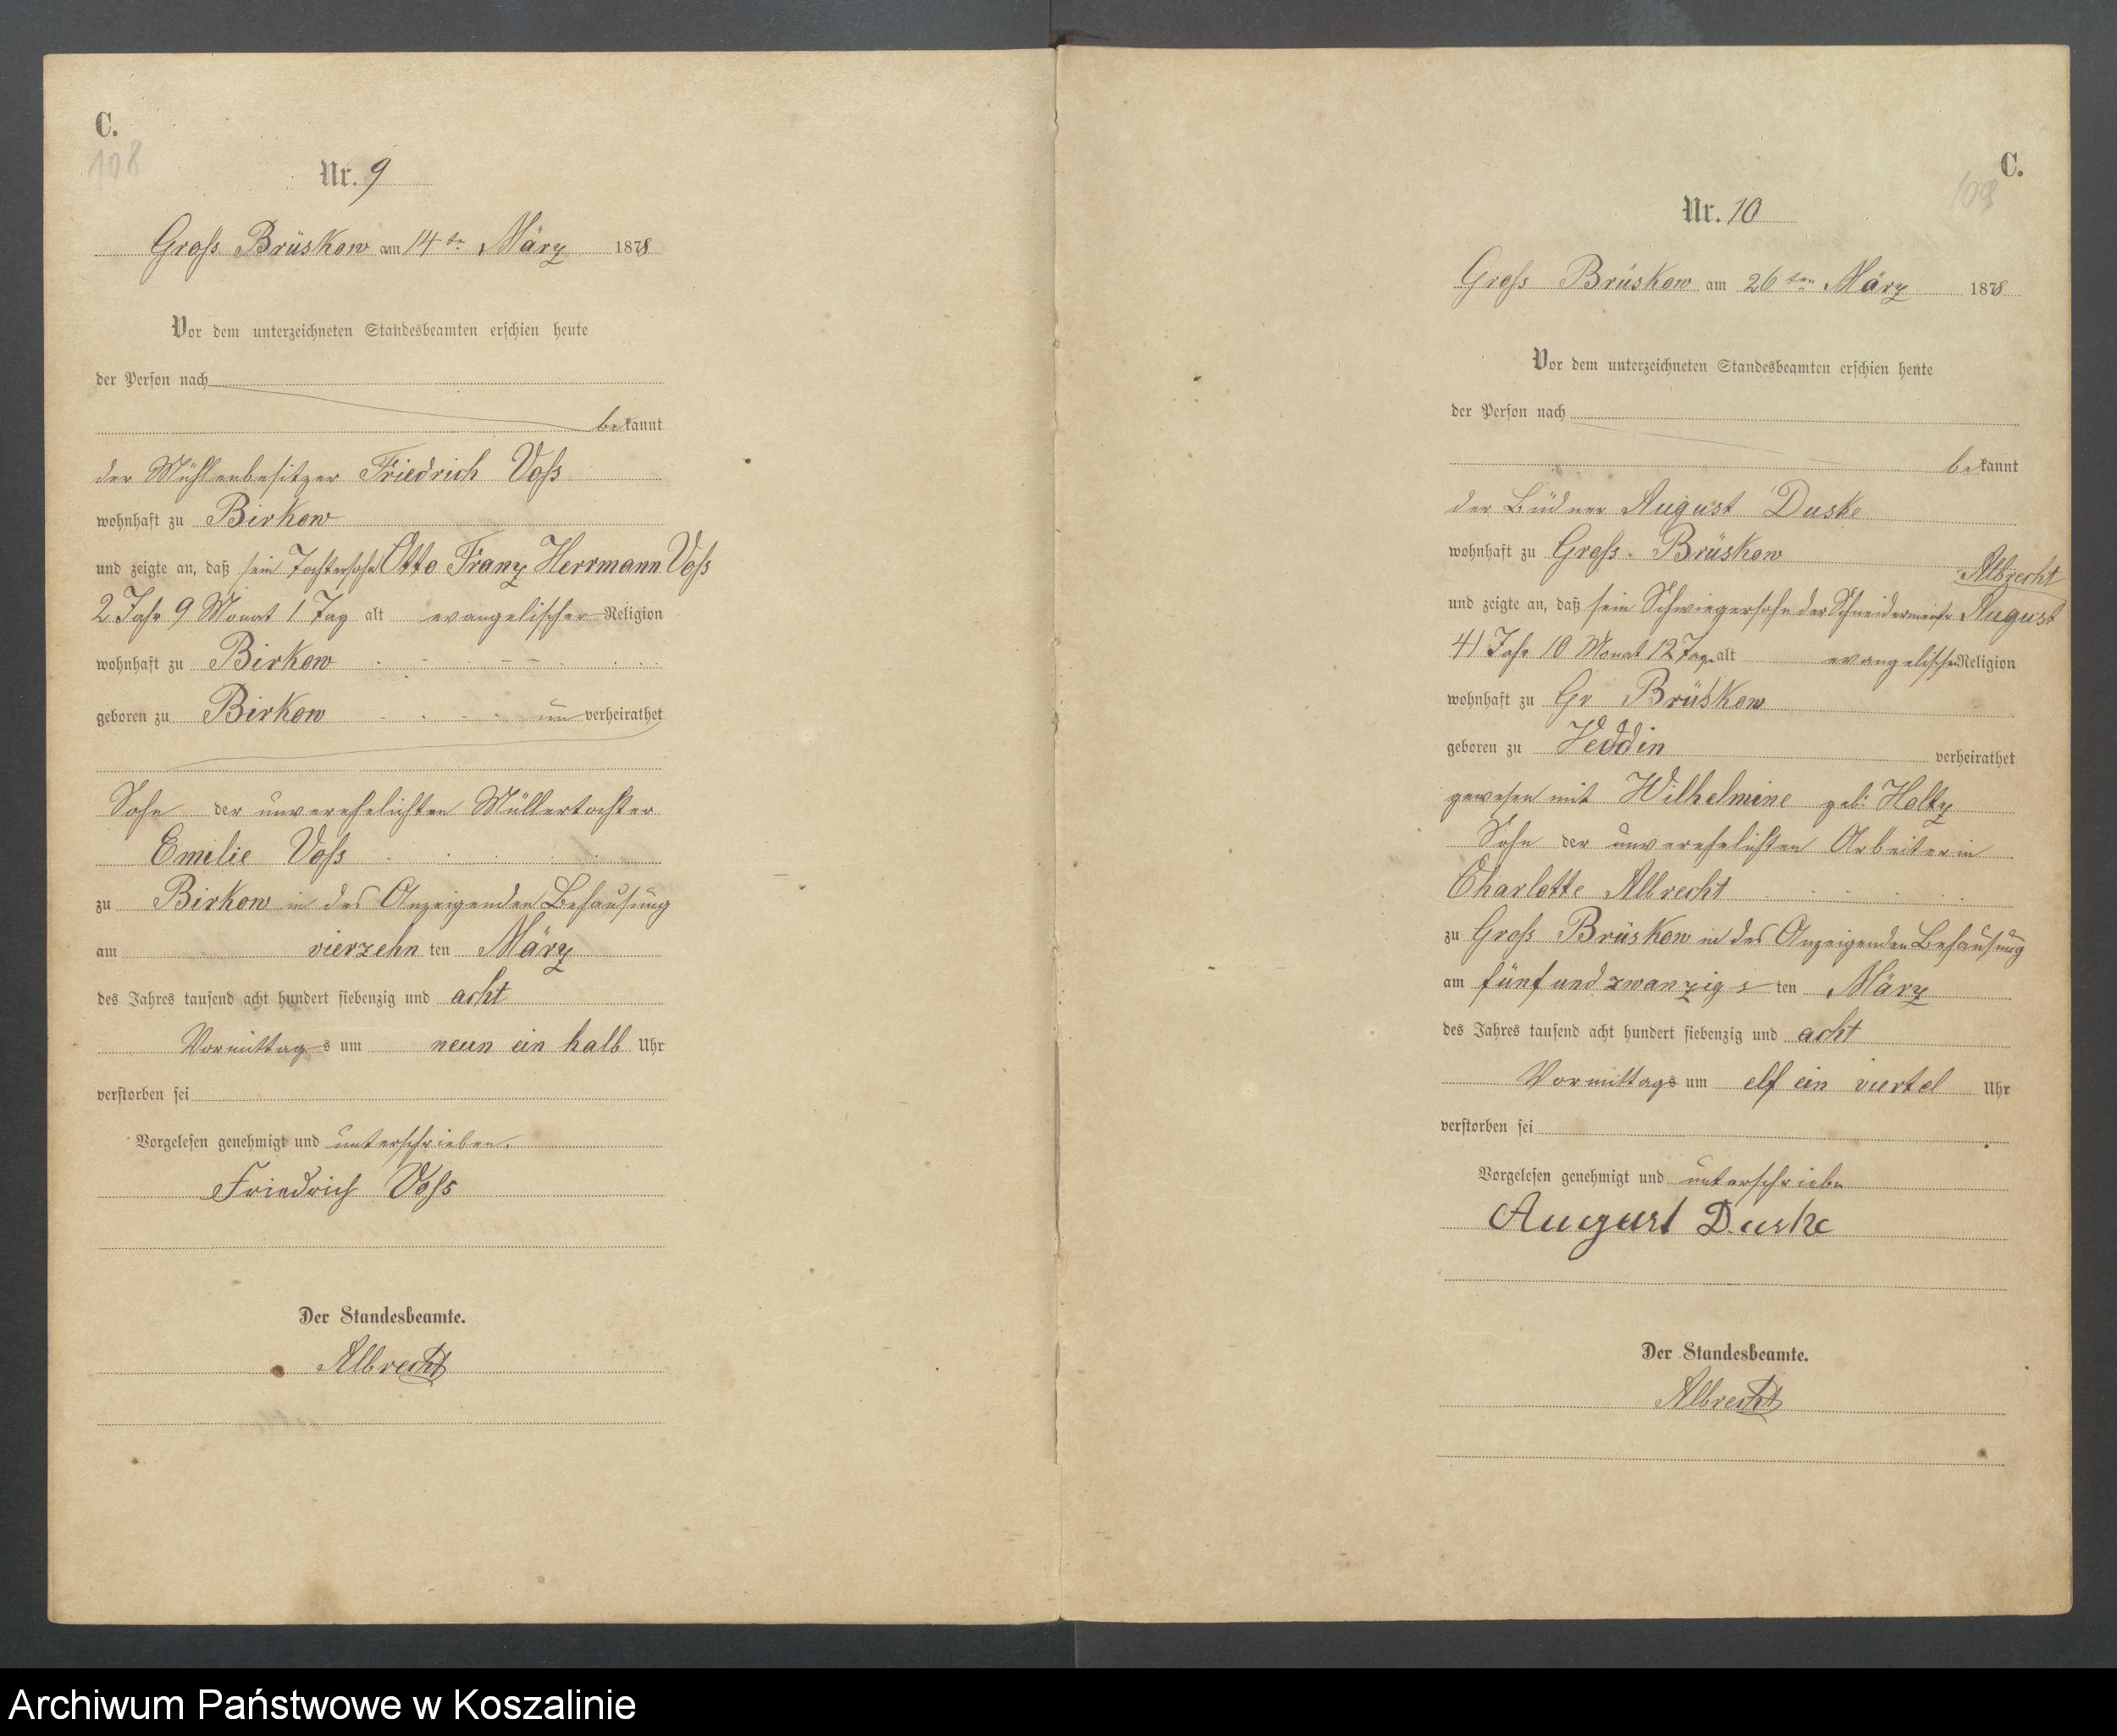 C.
108
Nr. 9
Gross Brüskow am 14ten März 1878
Vor dem unterzeichneten Standesbeamten erschien heute
der Person nach
bekannt
der Mühlenbesitzer Friedrich Voß
wohnhaft zu Birkow
und zeigte an, daß sein Tochtersohn Otto Franz Herrmann Voß
2 Jahr 9 Monat 1 Tag alt evangelischer Religion
wohnhaft zu Birkow
geboren zu Birkow unverheirathet
Sohn der unverehelichten Müllertochter
Emilie Voß
zu Birkow in des Anzeigenden Behausung
am vierzehnten März
des Jahres tausend acht hundert siebenzig und acht
Vormittags um neun ein halb Uhr
verstorben sei
Vorgelesen genehmigt und unterschrieben.
Friedrich Voss
Der Standesbeamte.
Albrecht
C.
109
Nr. 10
Gross Brüskow am 26ten März 1878
Vor dem unterzeichneten Standesbeamten erschien heute
der Person nach
bekannt
der Büdner August Duske
wohnhaft zu Gross Brüskow
Albrecht
und zeigte an, daß sein Schwiegersohn der Schneidermeister August
41 Jahr 10 Monat 12 Tage alt evangelischer Religion
wohnhaft zu Gr Brüskow
geboren zu Veddin verheirathet
gewesen mit Wilhelmine geb: Holtz
Sohn der unverehelichten Arbeiterin
Charlotte Albrecht
zu Gross Brüskow in des Anzeigenden Behausung
am fünf und zwanzigsten März
des Jahres tausend acht hundert siebenzig und acht
Vormittags um elf ein viertel Uhr
verstorben sei
Vorgelesen genehmigt und unterschrieben
August Duske
Der Standesbeamte.
Albrecht
Archiwum Państwowe w Koszalinie